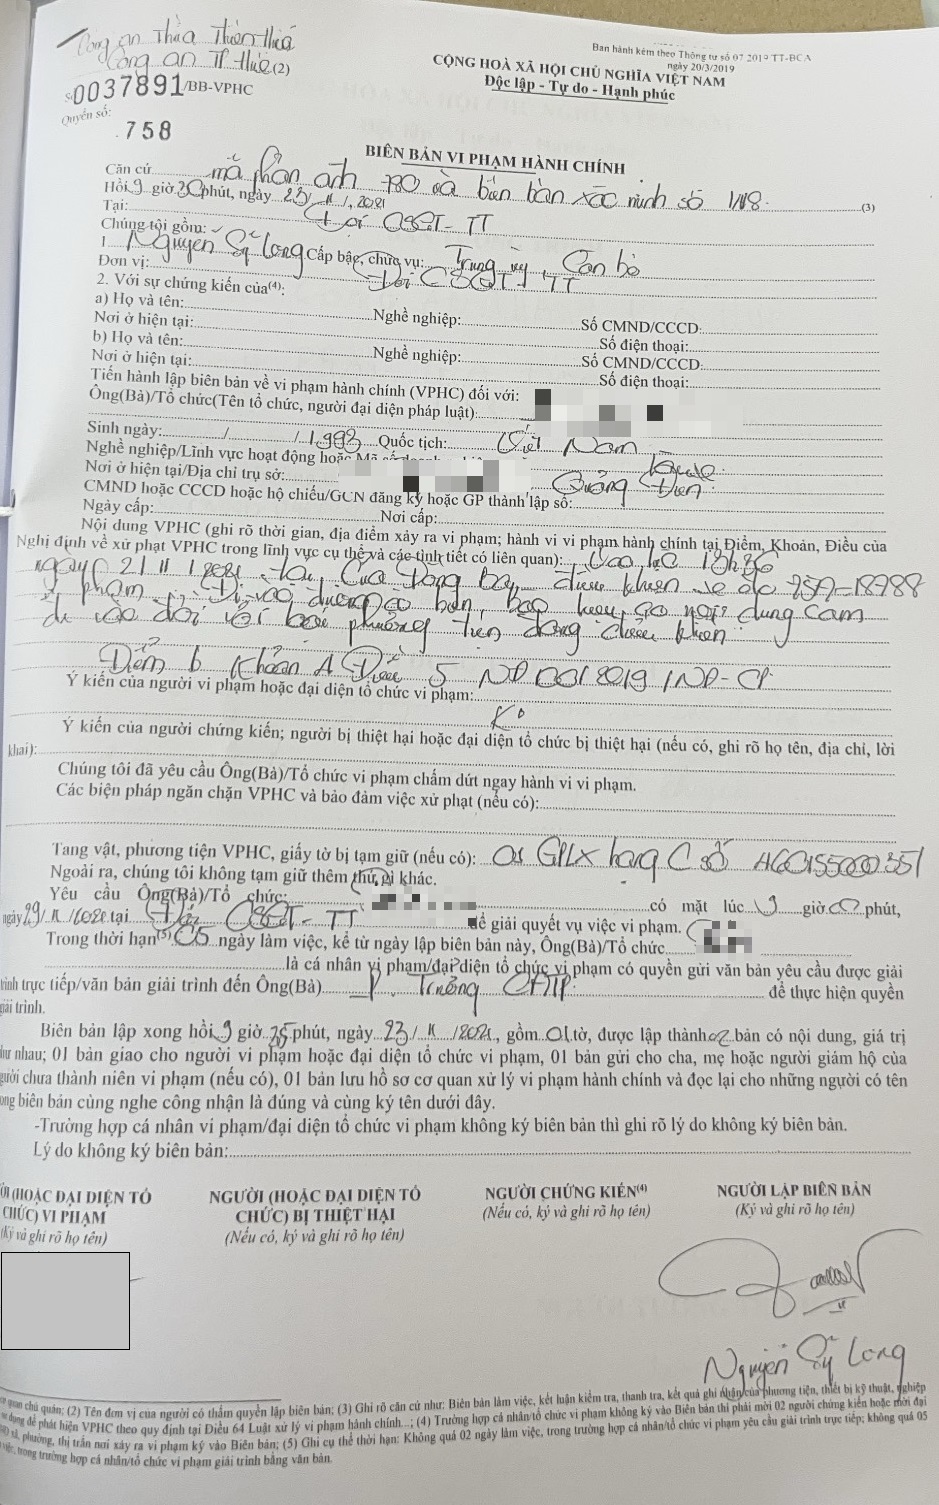 Công an Thừa Thiên Huế
Công an TP Huế (2)
Ban hành kèm theo Thông tư số 07 2019 TT-BCA
ngày 20/3/2019
CỘNG HOÀ XÃ HỘI CHỦ NGHĨA VIỆT NAM
Độc lập - Tự do - Hạnh phúc
Số 0037891/BB-VPHC
Quyển số: 758
BIÊN BẢN VI PHẠM HÀNH CHÍNH
Căn cứ mã phản ánh và biên bản xác minh số (3)
Hồi 9 giờ 30 phút, ngày 23/11/2021
Tại: Đội CSGT-TT
Chúng tôi gồm:
1. Nguyễn Sỹ Long Cấp bậc, chức vụ: Trung úy, Cán bộ
Đơn vị: Đội CSGT-TT
2. Với sự chứng kiến của(4):
a) Họ và tên: Nghề nghiệp: Số CMND/CCCD:
Nơi ở hiện tại: Số điện thoại:
b) Họ và tên: Nghề nghiệp: Số CMND/CCCD:
Nơi ở hiện tại: Số điện thoại:
Tiến hành lập biên bản về vi phạm hành chính (VPHC) đối với:
Ông(Bà)/Tổ chức(Tên tổ chức, người đại diện pháp luật):
Sinh ngày: / /1993 Quốc tịch: Việt Nam
Nghề nghiệp/Lĩnh vực hoạt động hoặc Mã số
Nơi ở hiện tại/Địa chỉ trụ sở: Quảng Điền
CMND hoặc CCCD hoặc hộ chiếu/GCN đăng ký hoặc GP thành lập số:
Ngày cấp: Nơi cấp:
Nội dung VPHC (ghi rõ thời gian, địa điểm xảy ra vi phạm; hành vi vi phạm hành chính tại Điểm, Khoản, Điều của
Nghị định về xử phạt VPHC trong lĩnh vực cụ thể và các tình tiết có liên quan): Vào lúc 18h36
ngày 21/11/2021, tại Cửa Đông Ba, điều khiển xe ôtô 75A-18788
vi phạm: Đi vào đường có biển báo hiệu có nội dung cấm
đi vào đối với loại phương tiện đang điều khiển
Điểm b Khoản 4 Điều 5 NĐ 100/2019/NĐ-CP
Ý kiến của người vi phạm hoặc đại diện tổ chức vi phạm:
Ko
Ý kiến của người chứng kiến; người bị thiệt hại hoặc đại diện tổ chức bị thiệt hại (nếu có, ghi rõ họ tên, địa chỉ, lời
khai):
Chúng tôi đã yêu cầu Ông(Bà)/Tổ chức vi phạm chấm dứt ngay hành vi vi phạm.
Các biện pháp ngăn chặn VPHC và bảo đảm việc xử phạt (nếu có):
Tang vật, phương tiện VPHC, giấy tờ bị tạm giữ (nếu có): 01 GPLX hạng C số
Ngoài ra, chúng tôi không tạm giữ thêm thứ gì khác.
Yêu cầu Ông(Bà)/Tổ chức: có mặt lúc 9 giờ 00 phút,
ngày 29/11/2021 tại Đội CSGT-TT để giải quyết vụ việc vi phạm.
Trong thời hạn(5) 05 ngày làm việc, kể từ ngày lập biên bản này, Ông(Bà)/Tổ chức
là cá nhân vi phạm/đại diện tổ chức vi phạm có quyền gửi văn bản yêu cầu được giải
trình trực tiếp/văn bản giải trình đến Ông(Bà) P. Trưởng CATP để thực hiện quyền
giải trình.
Biên bản lập xong hồi 9 giờ 35 phút, ngày 23/11/2021, gồm 01 tờ, được lập thành 02 bản có nội dung, giá trị
như nhau; 01 bản giao cho người vi phạm hoặc đại diện tổ chức vi phạm, 01 bản gửi cho cha, mẹ hoặc người giám hộ của
người chưa thành niên vi phạm (nếu có), 01 bản lưu hồ sơ cơ quan xử lý vi phạm hành chính và đọc lại cho những người có tên
trong biên bản cùng nghe công nhận là đúng và cùng ký tên dưới đây.
-Trường hợp cá nhân vi phạm/đại diện tổ chức vi phạm không ký biên bản thì ghi rõ lý do không ký biên bản.
Lý do không ký biên bản:
ƯỜI (HOẶC ĐẠI DIỆN TỔ
CHỨC) VI PHẠM
(Ký và ghi rõ họ tên)
NGƯỜI (HOẶC ĐẠI DIỆN TỔ
CHỨC) BỊ THIỆT HẠI
(Nếu có, ký và ghi rõ họ tên)
NGƯỜI CHỨNG KIẾN(4)
(Nếu có, ký và ghi rõ họ tên)
NGƯỜI LẬP BIÊN BẢN
(Ký và ghi rõ họ tên)
Nguyễn Sỹ Long
quan chủ quản; (2) Tên đơn vị của người có thẩm quyền lập biên bản; (3) Ghi rõ căn cứ như: Biên bản làm việc, kết luận kiểm tra, thanh tra, kết quả ghi nhận của phương tiện, thiết bị kỹ thuật, nghiệp
dụng để phát hiện VPHC theo quy định tại Điều 64 Luật xử lý vi phạm hành chính...; (4) Trường hợp cá nhân/tổ chức vi phạm không ký vào Biên bản thì phải mời 02 người chứng kiến hoặc mời đại
xã, phường, thị trấn nơi xảy ra vi phạm ký vào Biên bản; (5) Ghi cụ thể thời hạn: Không quá 02 ngày làm việc, trong trường hợp cá nhân/tổ chức vi phạm yêu cầu giải trình trực tiếp; không quá 05
việc, trong trường hợp cá nhân/tổ chức vi phạm giải trình bằng văn bản.